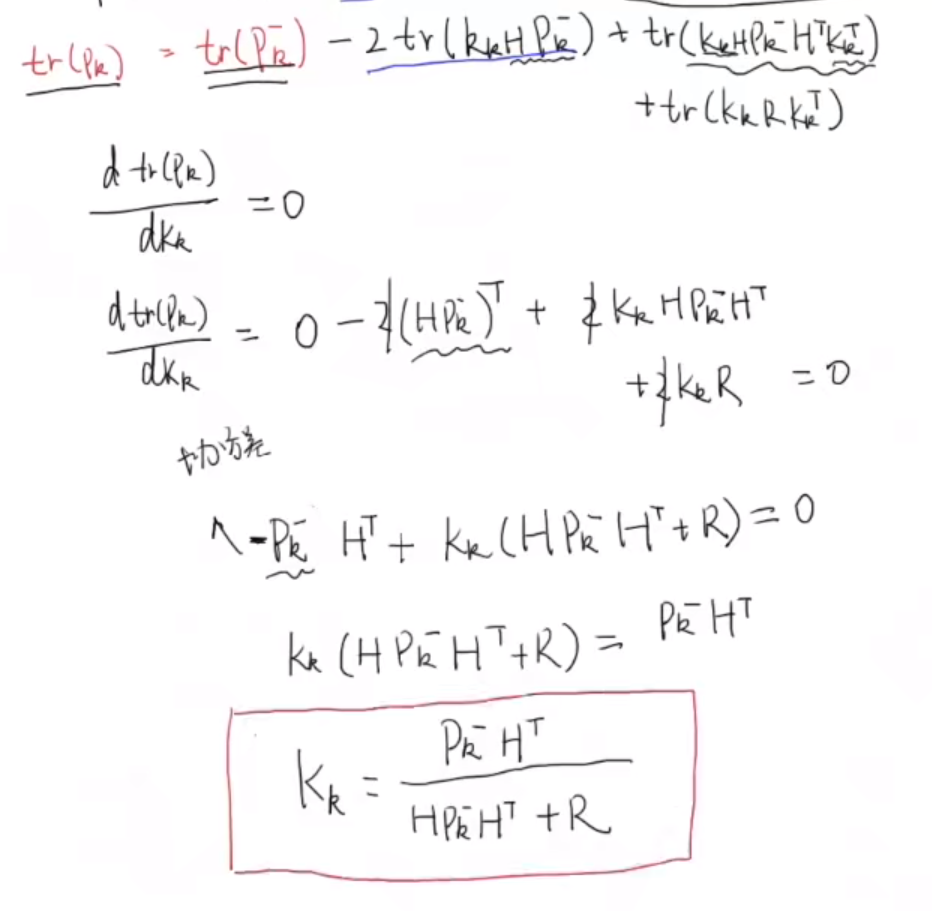 tr(P_k) = tr(P_k^-) - 2tr(K_kHP_k^-) + tr(K_kHP_k^-H^TK_k^T)
+tr(K_kRK_k^T)
d tr(P_k)/dK_k = 0
d tr(P_k)/dK_k = 0 - 2(HP_k^-)^T + 2K_kHP_k^-H^T
+2K_kR = 0
协方差
-P_k^- H^T + K_k(HP_k^-H^T+R) = 0
K_k(HP_k^-H^T+R) = P_k^-H^T
K_k = P_k^-H^T/(HP_k^-H^T+R)